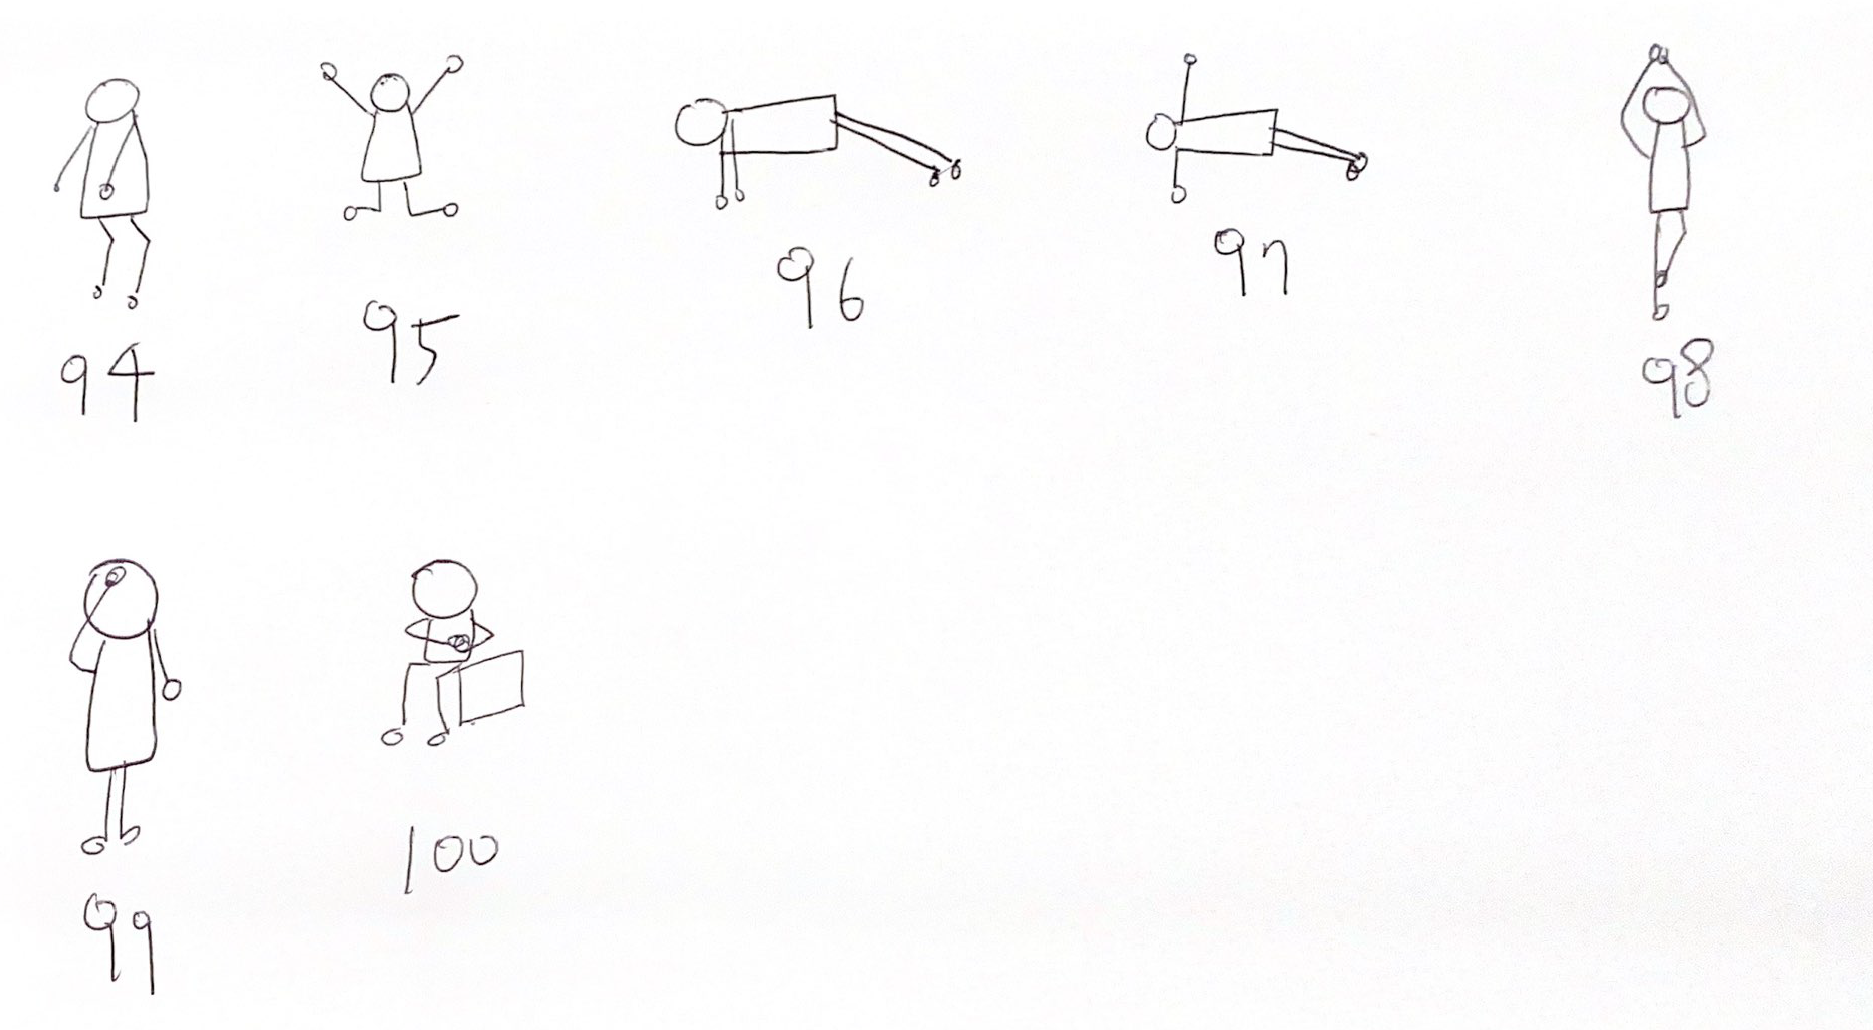 94
95
96
97
98
99
100